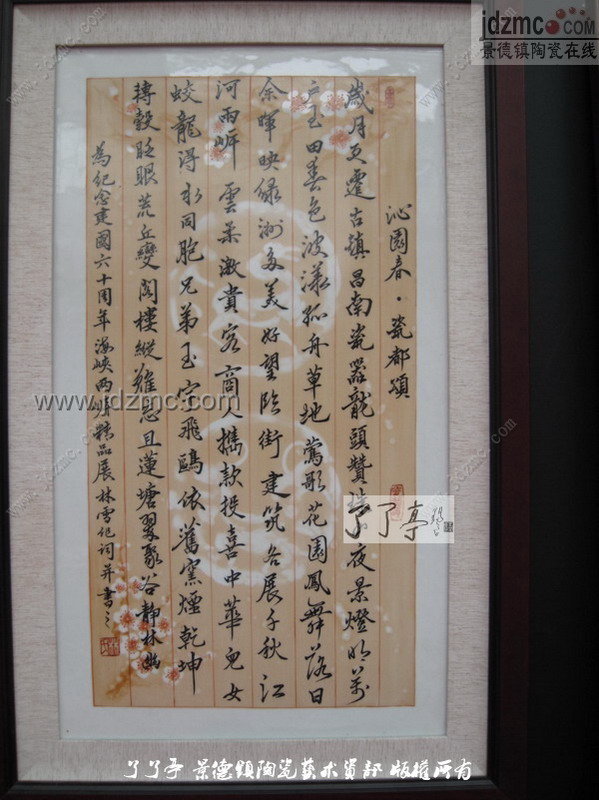 沁園春·瓷都頌
歲月更遷古鎮昌南瓷器龍頭贊 夜景燈明萬
戶玉田春色波漾孤舟草地鶯歌花園鳳舞落日
余暉映綠洲多美好望臨街建筑各展千秋江
河兩岸雲柔激貴客商人攜款投喜中華兒女
蛟龍得水同胞兄弟玉宇飛鷗依舊窯煙乾坤
轉轂眨眼荒丘變閣樓縱難忘且蓮塘翠聚谷靜林幽
為紀念建國六十周年海峽兩岸精品展林雪作詞并書之
jdzmc.COM
景德镇陶瓷在线
www.jdzmc.com
了了亭
了了亭 景德鎮陶瓷藝术資部 版權所有